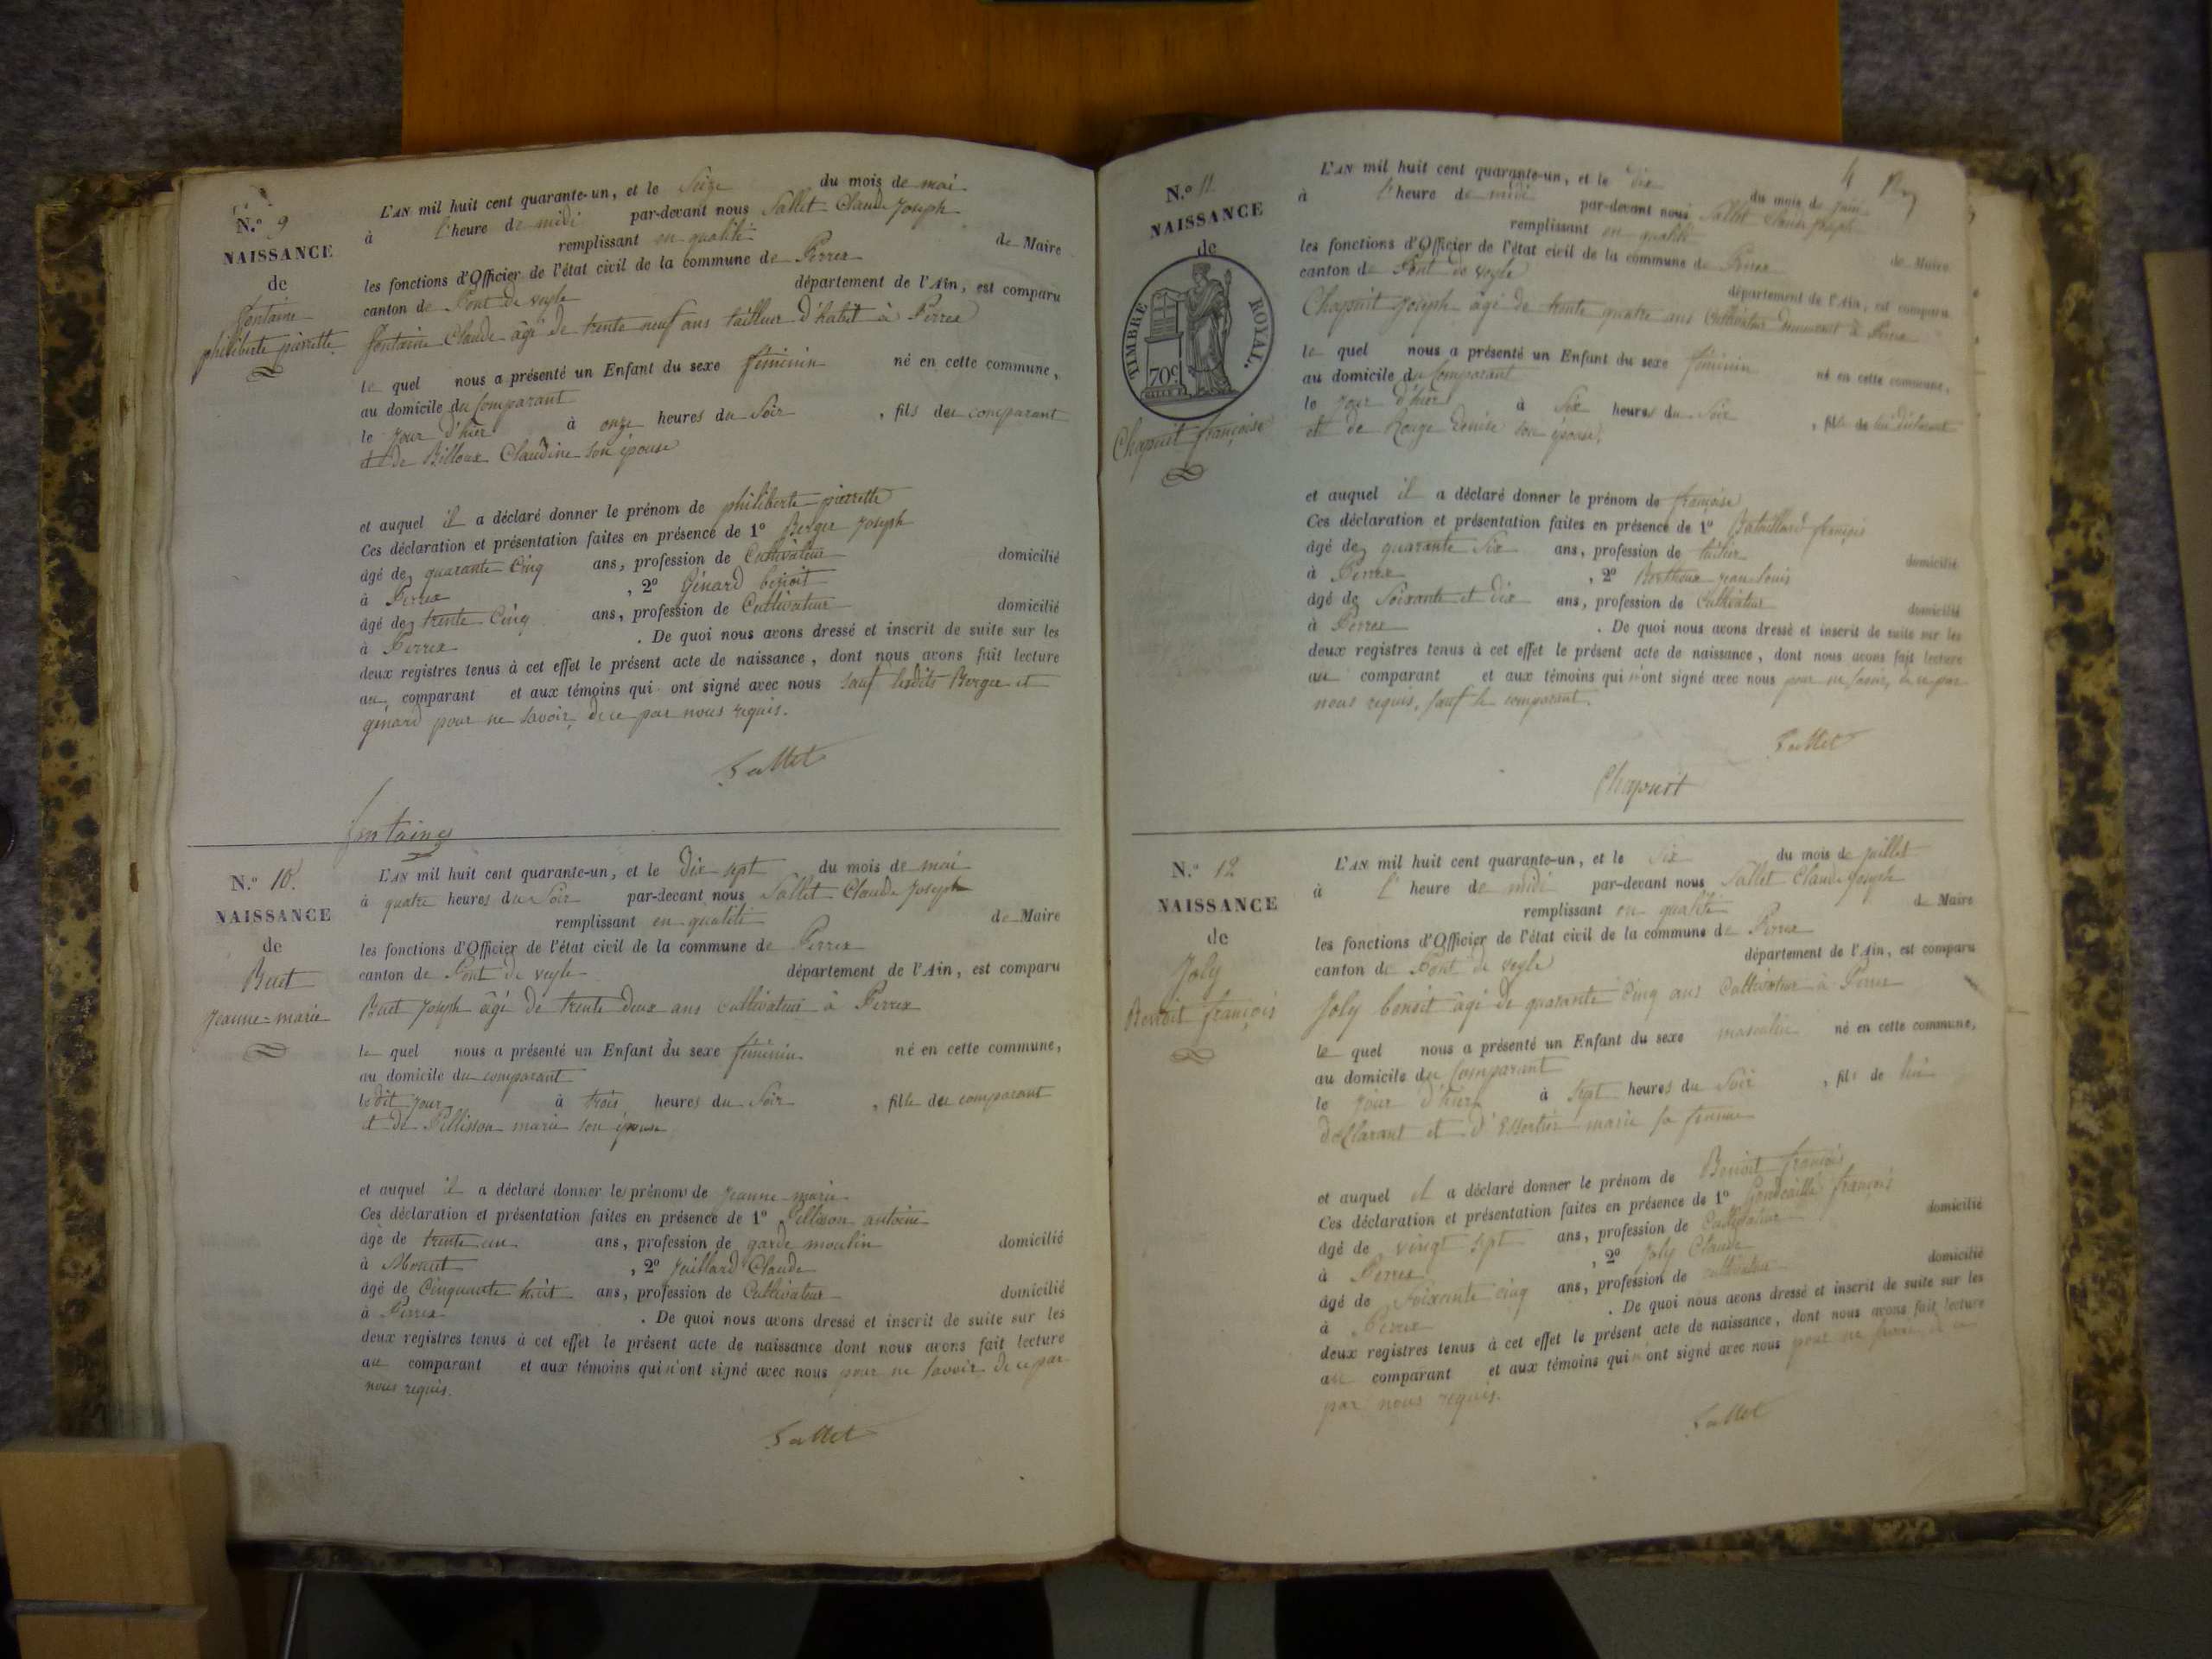 N.º 9
NAISSANCE
de
fontaine
philiberte pierrette
L'AN mil huit cent quarante-un, et le Seize du mois de mai
à l'heure de midi par-devant nous Sallet Claude Joseph
remplissant en qualité de Maire
les fonctions d'Officier de l'état civil de la commune de Perrex
canton de Pont de veyle département de l'Ain, est comparu
fontaine Claude âgé de trente neuf ans tailleur d'habit à Perrex
le quel nous a présenté un Enfant du sexe féminin né en cette commune,
au domicile du comparant
le jour d'hier à onze heures du Soir, fils du comparant
et de Billoux Claudine son épouse
et auquel il a déclaré donner le prénom de philiberte pierrette
Ces déclaration et présentation faites en présence de 1º Berger Joseph
âgé de quarante cinq ans, profession de Cultivateur domicilié
à Perrex, 2º Génard benoit
âgé de trente cinq ans, profession de Cultivateur domicilié
à Perrex. De quoi nous avons dressé et inscrit de suite sur les
deux registres tenus à cet effet le présent acte de naissance, dont nous avons fait lecture
au comparant et aux témoins qui ont signé avec nous sauf lesdits Berger et
génard pour ne savoir, de ce par nous requis.
Sallet
fontaines
N.º 10.
NAISSANCE
de
Buet
Jeanne-marie
L'AN mil huit cent quarante-un, et le dix sept du mois de mai
à quatre heures du Soir par-devant nous Sallet Claude Joseph
remplissant en qualité de Maire
les fonctions d'Officier de l'état civil de la commune de Perrex
canton de Pont de veyle département de l'Ain, est comparu
Buet Joseph âgé de trente deux ans cultivateur à Perrex
le quel nous a présenté un Enfant du sexe féminin né en cette commune,
au domicile du comparant
ledit jour à trois heures du Soir, fille du comparant
et de Pellisson marie son épouse
et auquel il a déclaré donner les prénoms de Jeanne-marie
Ces déclaration et présentation faites en présence de 1º Pellisson antoine
âgé de trente un ans, profession de garde moulin domicilié
à, 2º Jaillard Claude
âgé de Cinquante huit ans, profession de Cultivateur domicilié
à Perrex. De quoi nous avons dressé et inscrit de suite sur les
deux registres tenus à cet effet le présent acte de naissance dont nous avons fait lecture
au comparant et aux témoins qui n'ont signé avec nous pour ne savoir de ce par
nous requis.
Sallet
4
N.º 11
NAISSANCE
de
TIMBRE ROYAL.
70c
Chapuit françoise
L'AN mil huit cent quarante-un, et le dix du mois de juin
à l'heure de midi par-devant nous Sallet Claude Joseph
remplissant en qualité de Maire
les fonctions d'Officier de l'état civil de la commune de Perrex
canton de Pont de veyle département de l'Ain, est comparu
Chapuit Joseph âgé de trente quatre ans Cultivateur demeurant à Perrex
le quel nous a présenté un Enfant du sexe féminin né en cette commune,
au domicile du Comparant
le jour d'hier à Six heures du Soir, fille de lui déclarant
et de Rouge Denise son épouse.
et auquel il a déclaré donner le prénom de françoise
Ces déclaration et présentation faites en présence de 1º Bataillard françois
âgé de quarante Six ans, profession de domicilié
à Perrex, 2º Berthoux Jean louis
âgé de Soixante et dix ans, profession de Cultivateur domicilié
à Perrex. De quoi nous avons dressé et inscrit de suite sur les
deux registres tenus à cet effet le présent acte de naissance, dont nous avons fait lecture
au comparant et aux témoins qui n'ont signé avec nous pour ne savoir, de ce par
nous requis, sauf le comparant.
Sallet
Chapuit
N.º 12
NAISSANCE
de
Joly
Benoit françois
L'AN mil huit cent quarante-un, et le Six du mois de juillet
à l'heure de midi par-devant nous Sallet Claude Joseph
remplissant en qualité de Maire
les fonctions d'Officier de l'état civil de la commune de Perrex
canton de Pont de veyle département de l'Ain, est comparu
Joly benoit âgé de quarante cinq ans Cultivateur à Perrex
le quel nous a présenté un Enfant du sexe masculin né en cette commune,
au domicile du Comparant
le jour d'hier à Sept heures du Soir, fils de lui
déclarant et d'Essertier marie sa femme
et auquel il a déclaré donner le prénom de Benoit françois
Ces déclaration et présentation faites en présence de 1º françois
âgé de vingt sept ans, profession de Cultivateur domicilié
à Perrex, 2º Joly Claude
âgé de Soixante cinq ans, profession de cultivateur domicilié
à Perrex. De quoi nous avons dressé et inscrit de suite sur les
deux registres tenus à cet effet le présent acte de naissance, dont nous avons fait lecture
au comparant et aux témoins qui n'ont signé avec nous pour ne savoir de ce
par nous requis.
Sallet